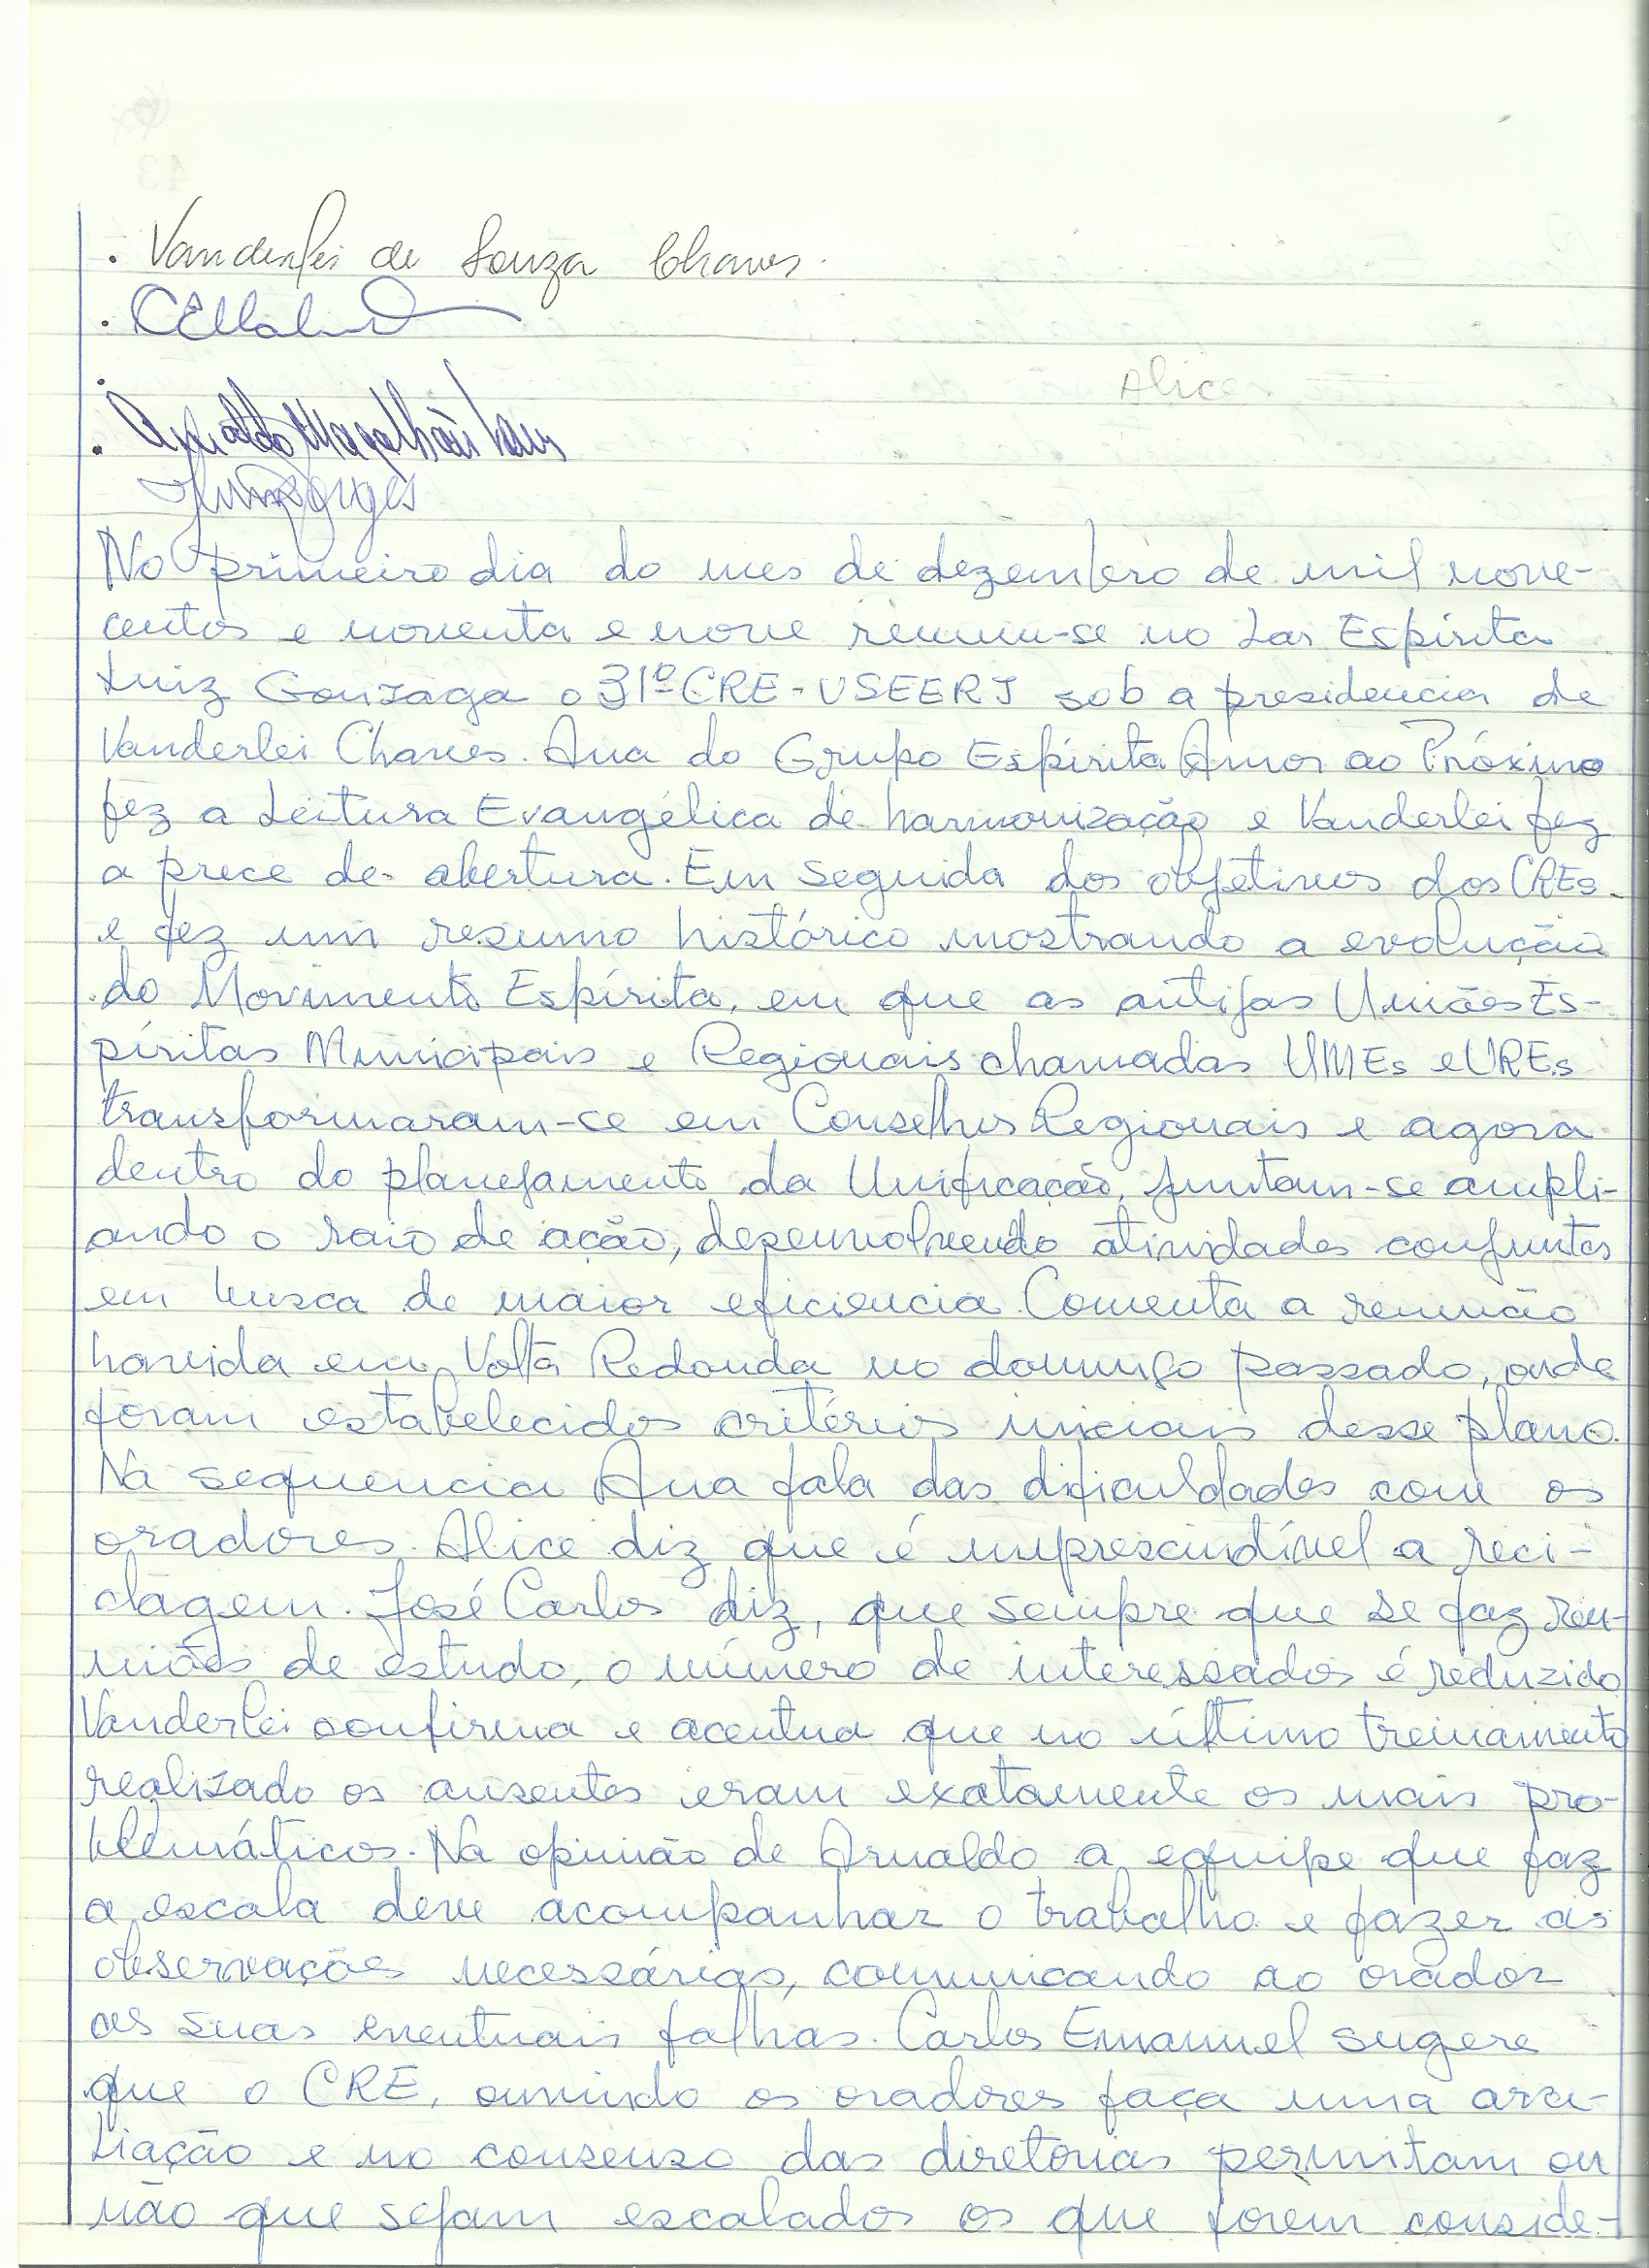 . Vanderlei de Souza Chaves.
Alice
. Arnaldo Magalhães
No primeiro dia do mes de dezembro de mil nove-
centos e noventa e nove reuniu-se no Lar Espírita
Luiz Gonzaga o 31º CRE-USEERJ sob a presidencia de
Vanderlei Chaves. Ana do Grupo Espírita Amor ao Próximo
fez a Leitura Evangélica de harmonização e Vanderlei fez
a prece de abertura. Em seguida dos objetivos dos CREs
e fez um resumo histórico mostrando a evolução
do Movimento Espírita, em que as antigas Uniões Es-
píritas Municipais e Regionais chamadas UMEs e UREs
transformaram-se em Conselhos Regionais e agora
dentro do planejamento da Unificação, juntam-se ampli-
ando o raio de ação, desenvolvendo atividades conjuntas
em busca de maior eficiencia. Comenta a reunião
havida em Volta Redonda no domingo passado, onde
foram estabelecidos critérios iniciais desse plano.
Na sequencia Ana fala das dificuldades com os
oradores. Alice diz que é imprescindível a reci-
clagem. José Carlos diz, que sempre que se faz reu-
niões de estudo, o número de interessados é reduzido
Vanderlei confirma e acentua que no último treinamento
realizado os ausentes eram exatamente os mais pro-
blemáticos. Na opinião de Arnaldo a equipe que faz
a escala deve acompanhar o trabalho e fazer as
observações necessárias, comunicando ao orador
as suas eventuais falhas. Carlos Emanuel sugere
que o CRE, ouvindo os oradores faça uma ava-
liação e no consenso das diretorias permitam ou
não que sejam escalados os que forem conside-